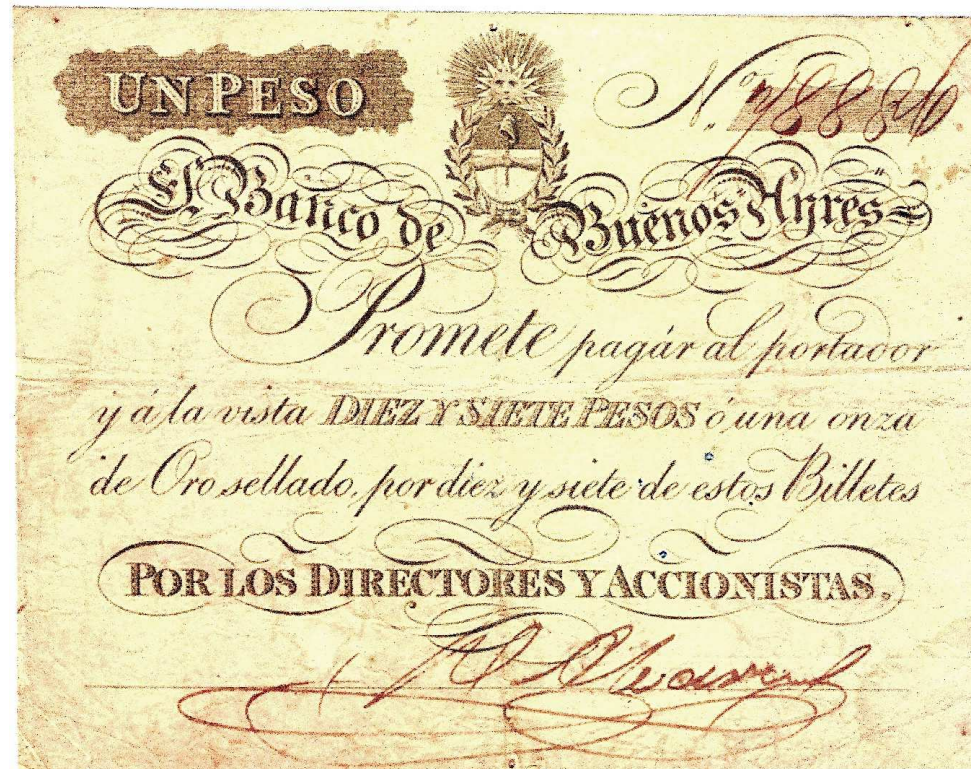 UN PESO
N.
El Banco de Buenos Ayres
Promete pagár al portador
y á la vista DIEZ Y SIETE PESOS ó una onza
de Oro sellado, por diez y siete de estos Billetes
POR LOS DIRECTORES Y ACCIONISTAS.